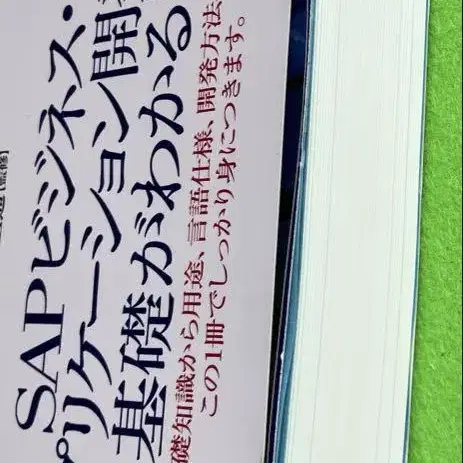 SAPビジネス・
プリケーション開
基礎がわかる
礎知識から用途、言語仕様、開発方法
この1冊でしっかり身につきます。